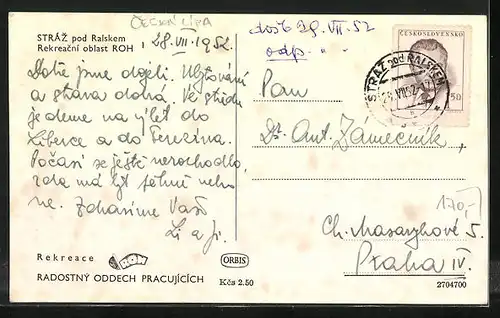 ČESKÁ LÍPA
STRÁŽ pod Ralskem
Rekreační oblast ROH
28.VII.1952.
došlo 29.VII.52
odp.
ČESKOSLOVENSKO
STRÁŽ pod RALSKEM
50
Dobře jsme dojeli. Ubytování
a strava dobrá. Ve středu
jedeme na výlet do
Liberce a do Terezína.
Počasí se ještě nerozhodlo,
zda má být pěkně nebo
ne. Zdravíme Vaši
Pan
Dr. Ant. Zámečník,
170,-
Ch. Masarykové 5.
Praha IV.
Rekreace
RADOSTNÝ ODDECH PRACUJÍCÍCH
ORBIS
Kčs 2.50
2704700